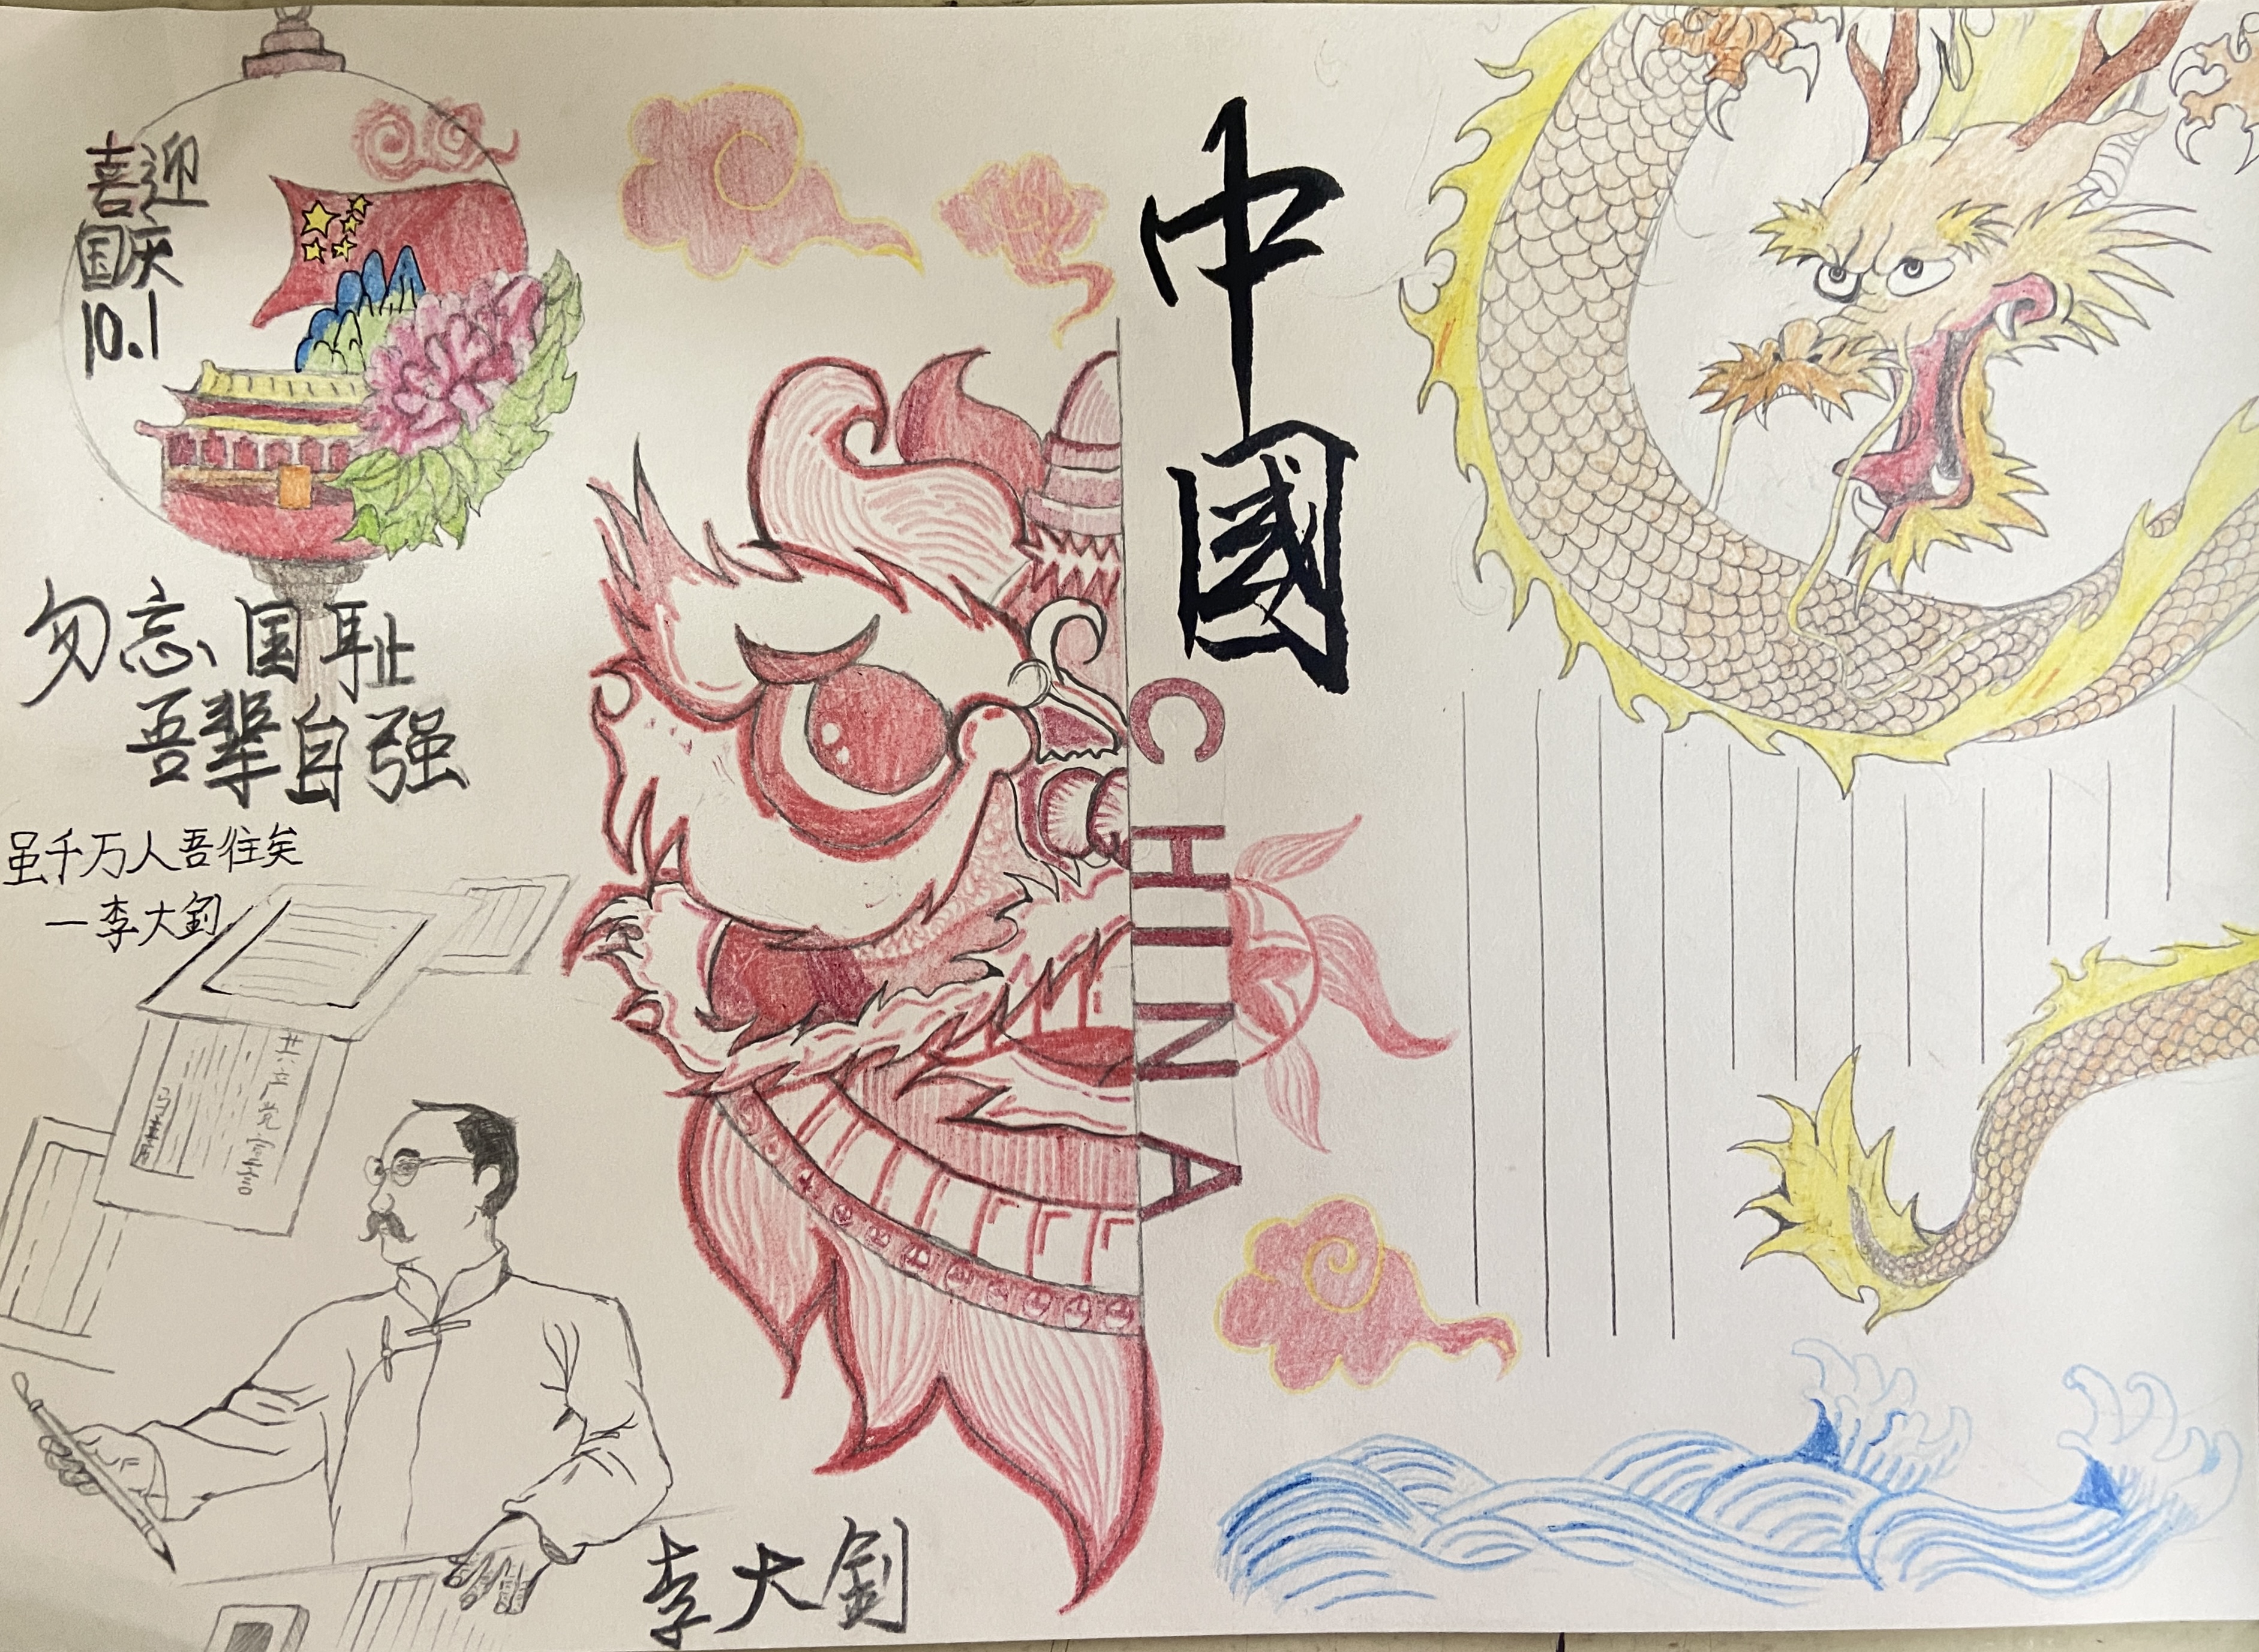 喜迎
国庆
10.1
勿忘国耻
吾辈自强
虽千万人吾往矣
—李大钊
共产党宣言
李大钊
中國
CHINA